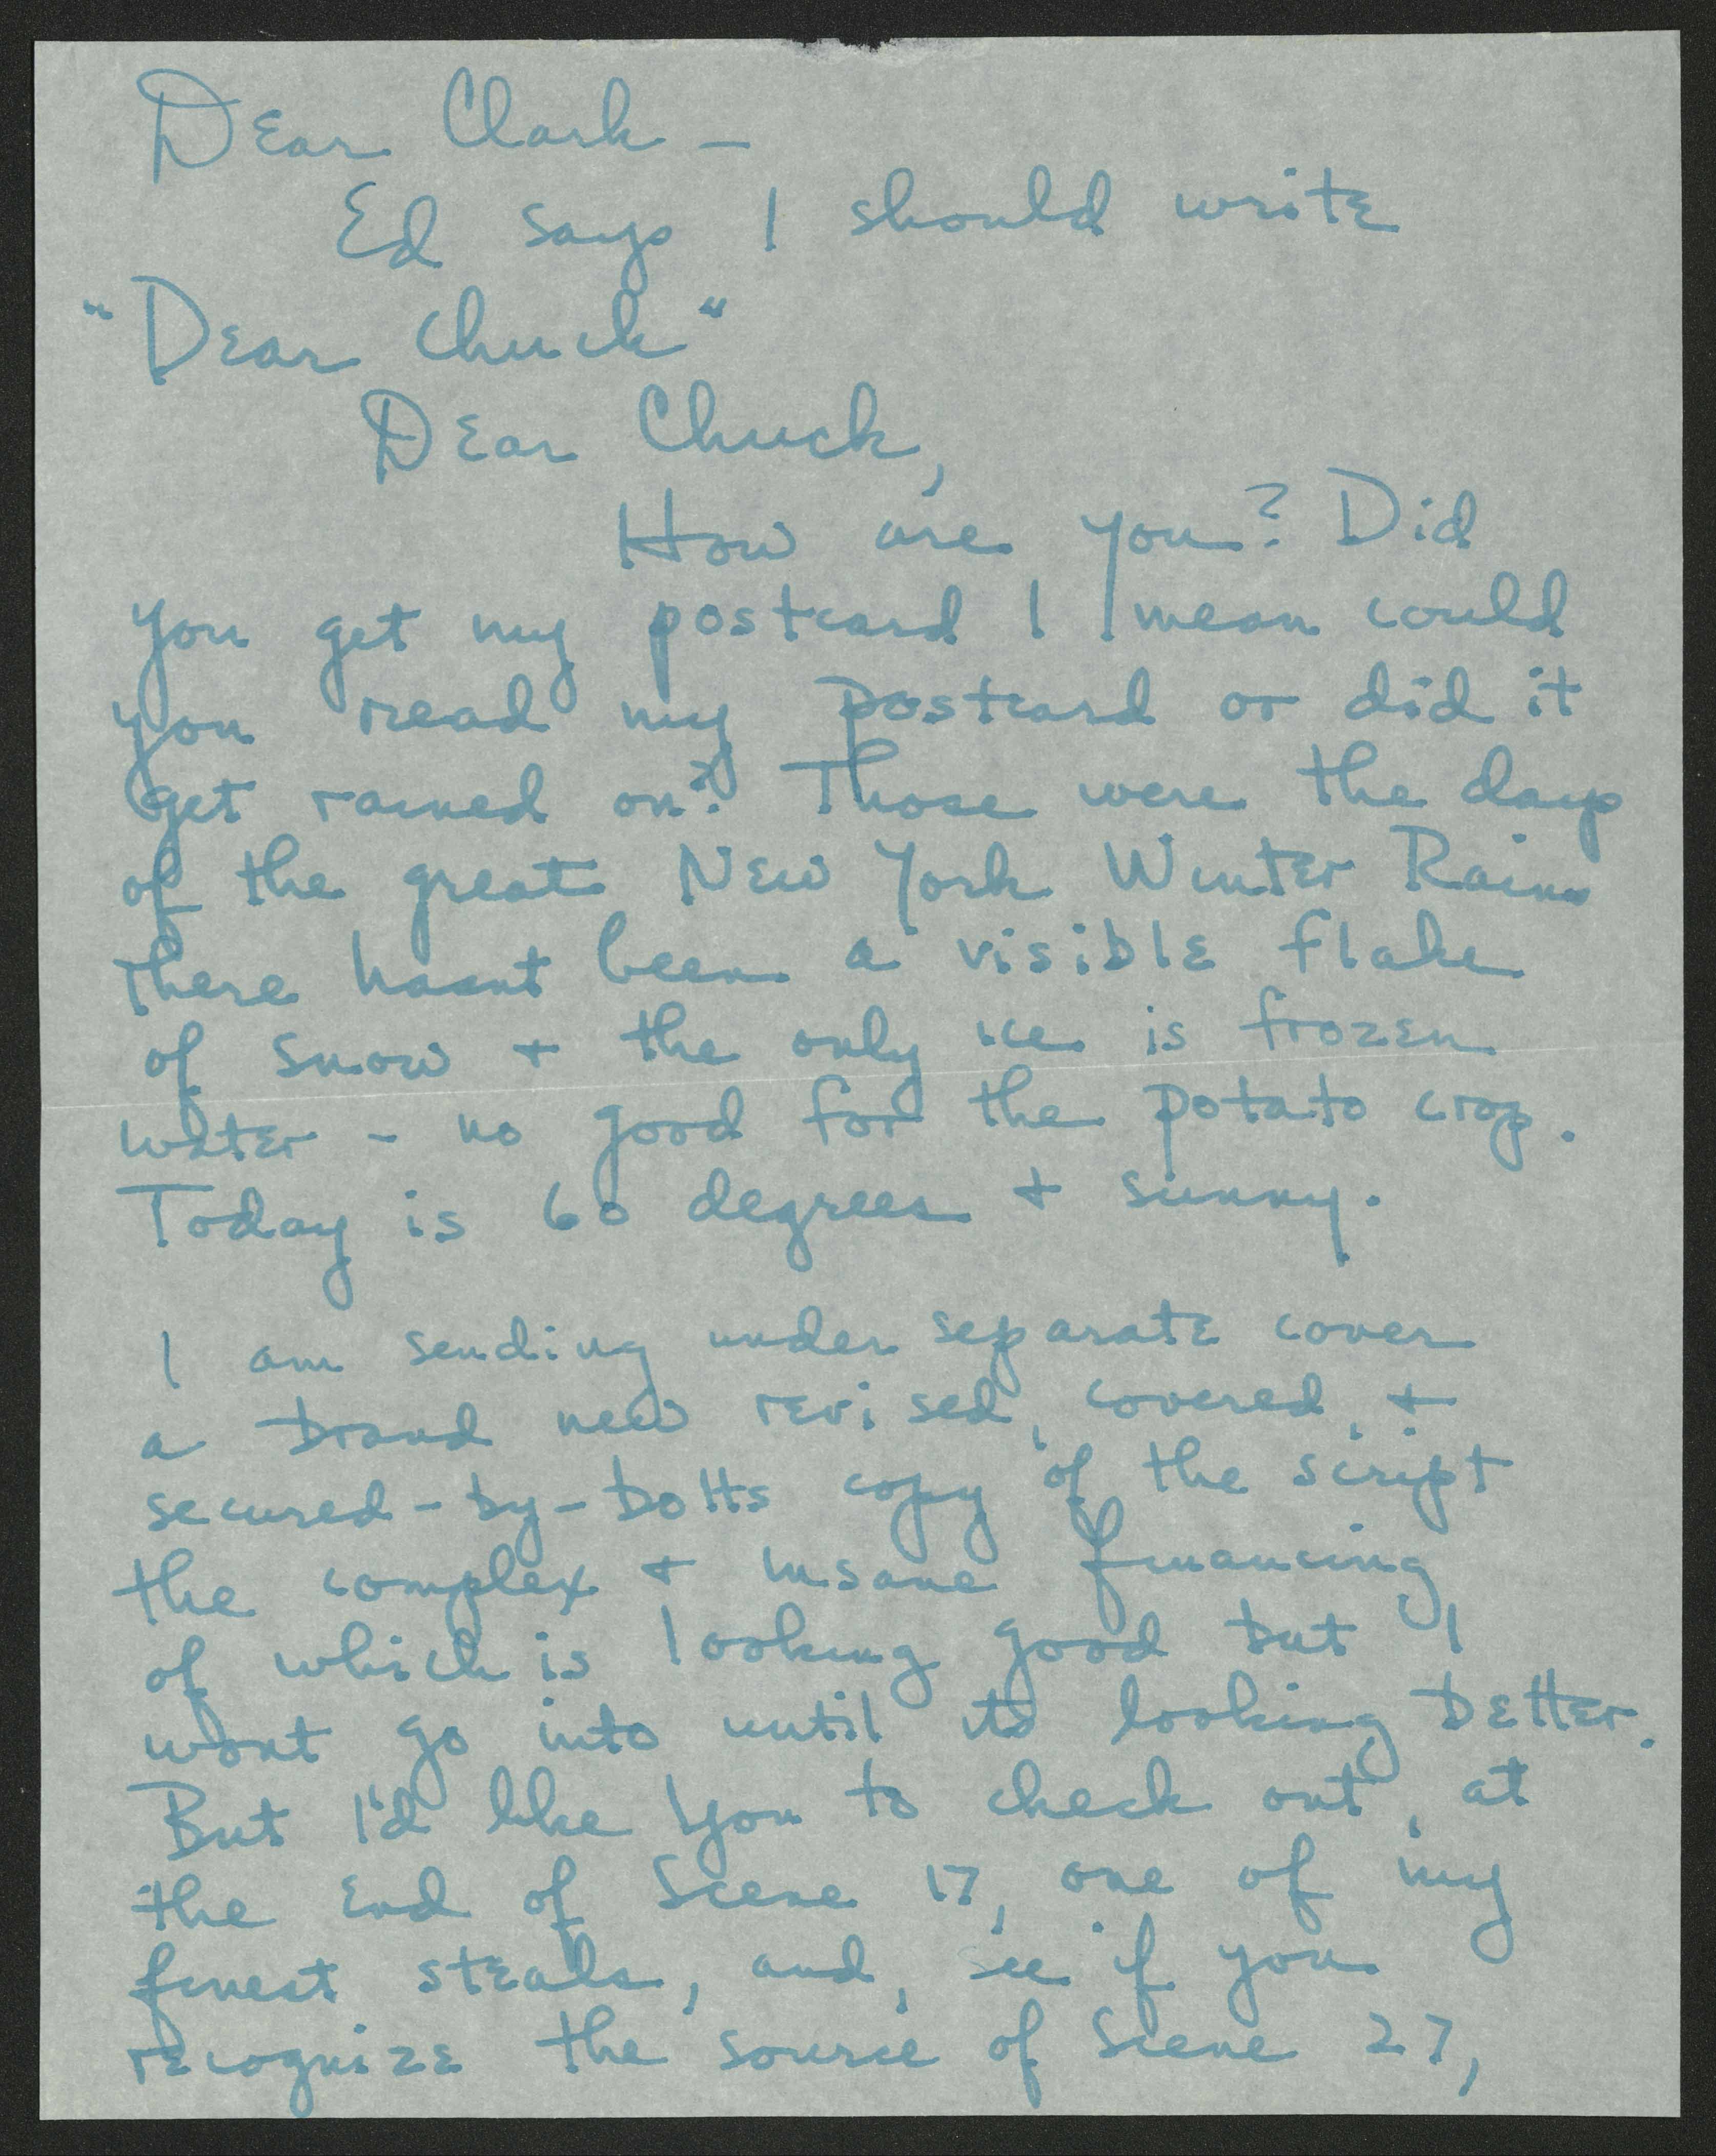 Dear Clark —
Ed says I should write
"Dear Chuck"
Dear Chuck,
How are you? Did
you get my postcard I mean could
you read my postcard or did it
get rained on? Those were the days
of the great New York Winter Rains
there hasnt been a visible flake
of snow + the only ice is frozen
water - no good for the potato crop.
Today is 60 degrees + sunny.
I am sending under separate cover
a brand new revised, covered, +
secured-by-bolts copy of the script
the complex + insane financing
of which is looking good but I
wont go into until its looking better.
But I'd like you to check out, at
the end of Scene 17, one of my
finest steals, and, see if you
recognize the source of Scene 27,